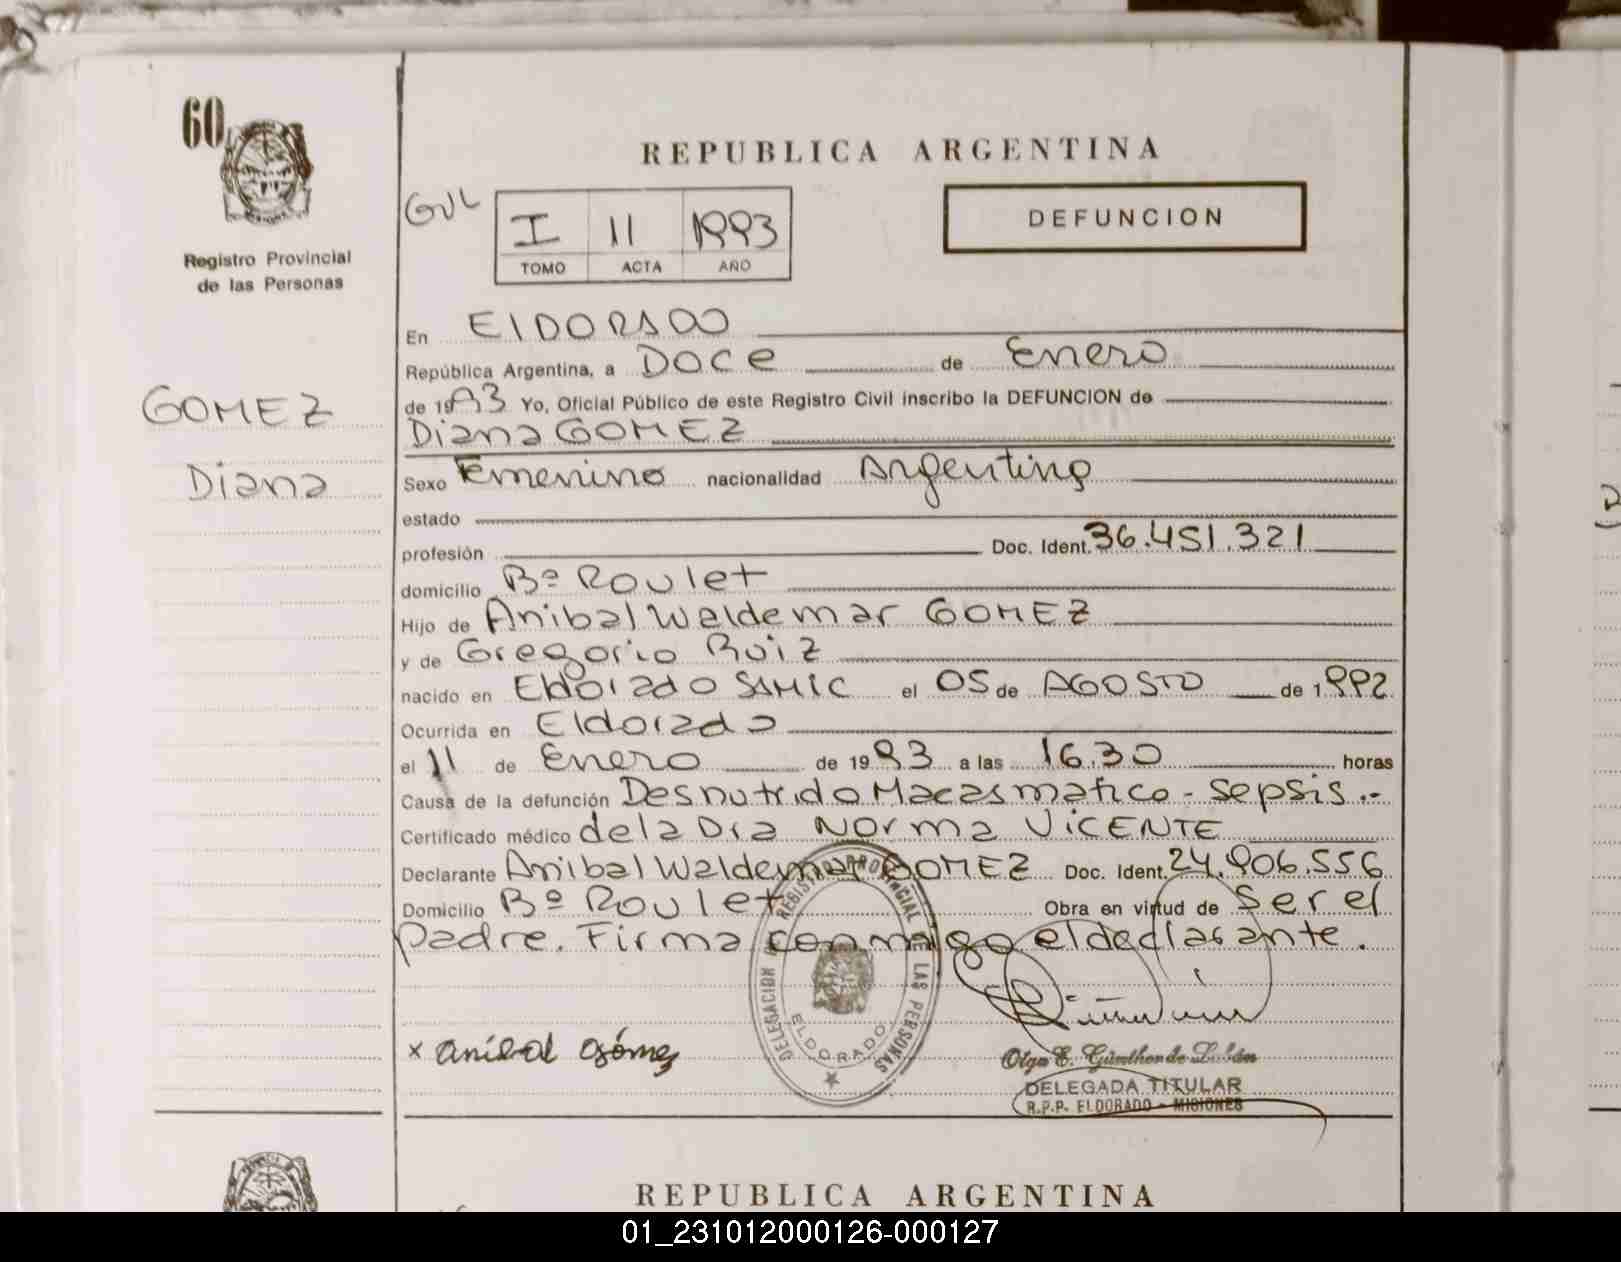 60
REPUBLICA ARGENTINA
GUL
I 11 1993
TOMO ACTA AÑO
DEFUNCION
Registro Provincial
de las Personas
GOMEZ
Diana
En ElDORADO
República Argentina, a DOCe de Enero
de 1993 Yo, Oficial Público de este Registro Civil inscribo la DEFUNCION de
Diana GOMEZ
Sexo Femenino nacionalidad Argentina
estado
profesión Doc. Ident. 36.451.321
domicilio Bº Roulet
Hijo de Anibal Waldemar GOMEZ
y de Gregorio Ruiz
nacido en Eldorado SAMIC el 05 de AGOSTO de 1992
Ocurrida en Eldorado
el 11 de Enero de 1993 a las 16.30 horas
Causa de la defunción Desnutrido Macasmatico - Sepsis.-
Certificado médico de la Dra Norma VICENTE
Declarante Anibal Waldemar GOMEZ Doc. Ident. 24.906.556
Domicilio Bº Roulet Obra en virtud de Ser el
padre. Firma conmigo el declarante.
DELEGACION REGISTRO PROVINCIAL DE LAS PERSONAS
ELDORADO
x anibal gómez
Olga E. Günther de
DELEGADA TITULAR
R.P.P. ELDORADO - MISIONES
REPUBLICA ARGENTINA
01_231012000126-000127